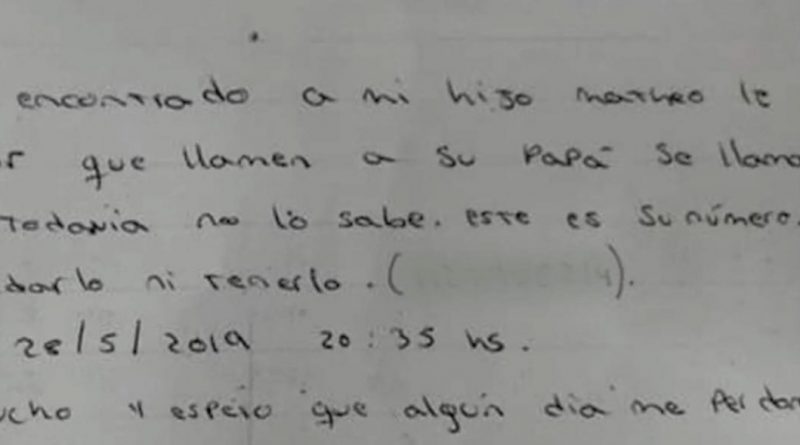 encontrado a mi hijo matheo le
r que llamen a su papá se llama
todavia no lo sabe. este es su número.
darlo ni tenerlo. ( ).
28/5/2019 20:35 hs.
ucho y espero que algún dia me perdon